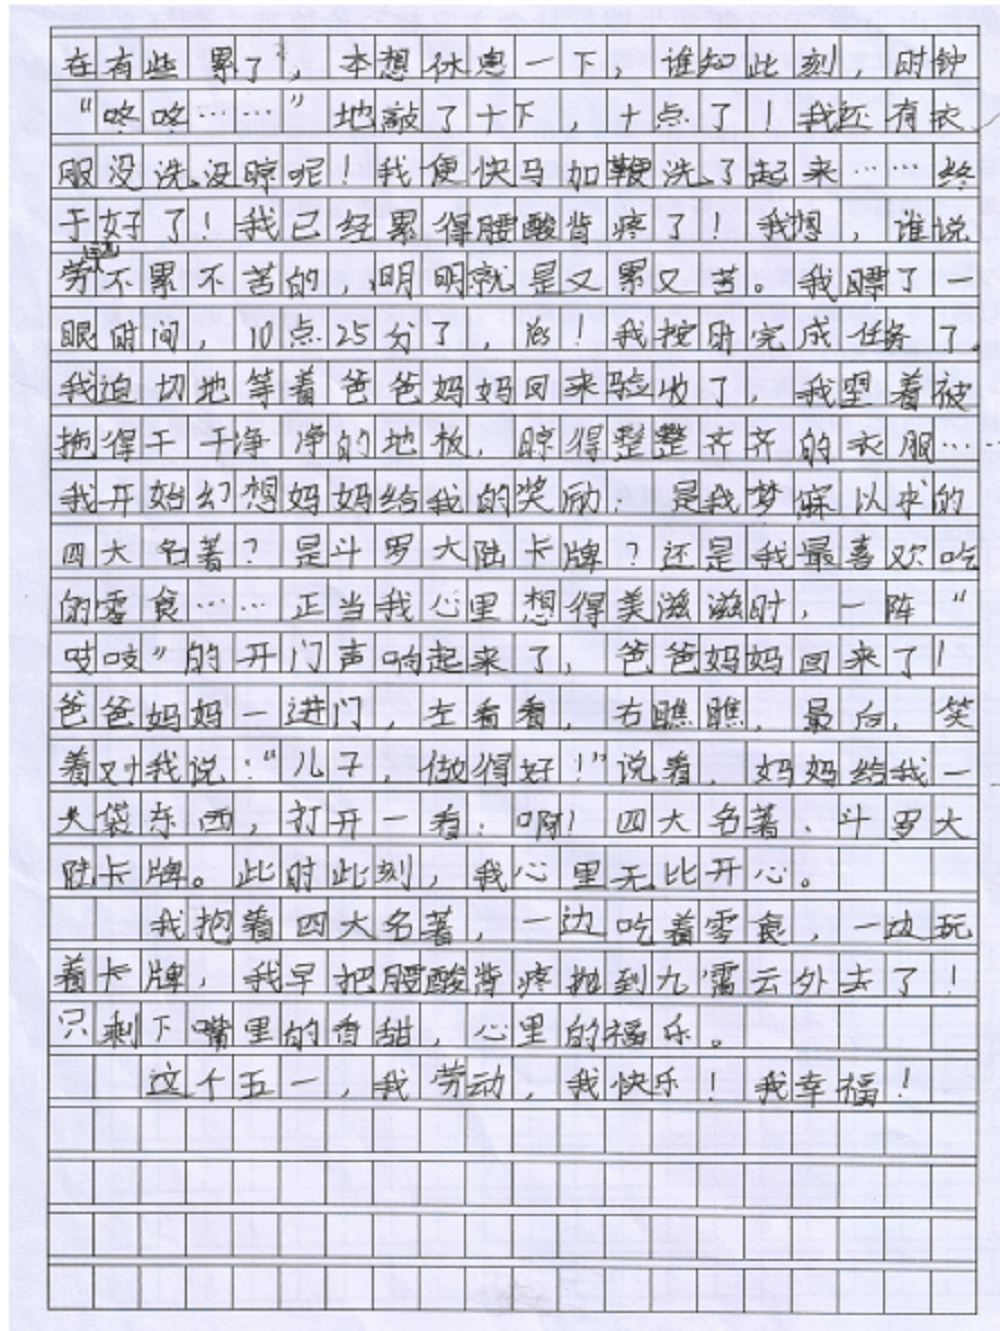 在有些累了，本想休息一下，谁知此刻，时钟
“咚咚……”地敲了十下，十点了！我还有衣
服没洗没晾呢！我便快马加鞭洗了起来……终
于好了！我已经累得腰酸背疼了！我想，谁说
劳动不累不苦的，明明就是又累又苦。我瞟了一
眼时间，10点25分了，哈！我按时完成任务了。
我迫切地等着爸爸妈妈回来验收了，我望着被
拖得干干净净的地板，晾得整整齐齐的衣服……
我开始幻想妈妈给我的奖励，是我梦寐以求的
四大名著？是斗罗大陆卡牌？还是我最喜欢吃
的零食……正当我心里想得美滋滋时，一阵“
吱吱”的开门声响起来了，爸爸妈妈回来了！
爸爸妈妈一进门，左看看，右瞧瞧，最后，笑
着对我说：“儿子，做得好！”说着，妈妈给我一
大袋东西，打开一看，啊！四大名著、斗罗大
陆卡牌。此时此刻，我心里无比开心。
我抱着四大名著，一边吃着零食，一边玩
着卡牌，我早把腰酸背疼抛到九霄云外去了！
只剩下嘴里的香甜，心里的福乐。
这个五一，我劳动，我快乐！我幸福！